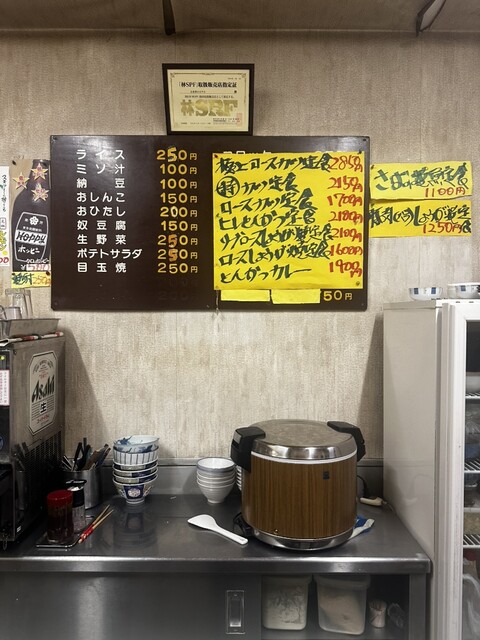 「林SPF」取扱販売店指定証
林SPF
ライス 250円
ミソ汁 100円
納豆 100円
おしんこ 150円
おひたし 200円
奴豆腐 150円
生野菜 250円
ポテトサラダ 250円
目玉焼 250円
極上ロースカツ定食 2850円
特カツ定食 2150円
ロースカツ定食 1700円
ヒレとんかつ定食
ロースしょうが焼定食 1600円
とんかつカレー 1900円
50円
さば塩焼定食
1100円
しょうが焼定食
1250円
Hoppy
ホッピー
Asahi
生